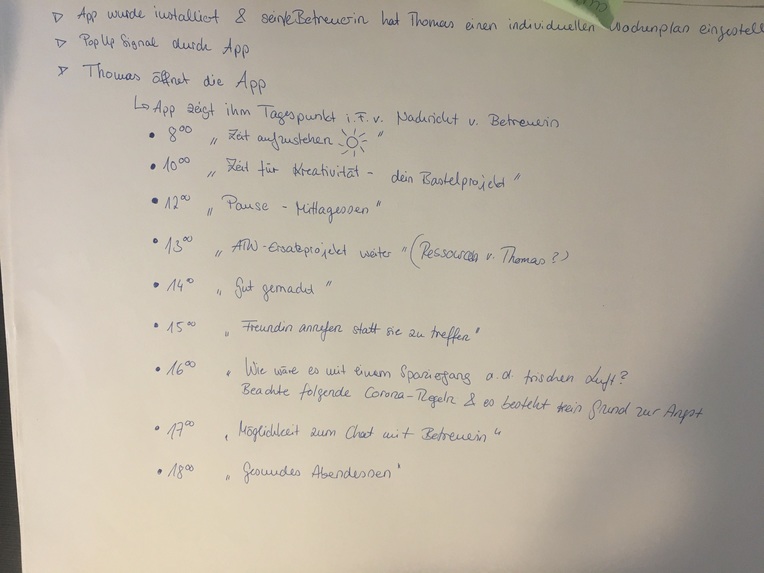 ▷ App wurde installiert & seine Betreuerin hat Thomas einen individuellen Wochenplan eingestell
▷ PopUp Signal durch App
▷ Thomas öffnet die App
↳ App zeigt ihm Tagespunkt i.F.v. Nachricht v. Betreuerin
• 8⁰⁰ „Zeit aufzustehen ☀"
• 10⁰⁰ „Zeit für Kreativität - dein Bastelprojekt"
• 12⁰⁰ „Pause - Mittagessen"
• 13⁰⁰ „ATW-Ersatzprojekt weiter" (Ressourcen v. Thomas?)
• 14⁰⁰ „Gut gemacht"
• 15⁰⁰ „Freundin anrufen statt sie zu treffen"
• 16⁰⁰ „Wie wäre es mit einem Spaziergang a.d. frischen Luft?
Beachte folgende Corona-Regeln & es besteht kein Grund zur Angst
• 17⁰⁰ „Möglichkeit zum Chat mit Betreuerin"
• 18⁰⁰ „Gesundes Abendessen"